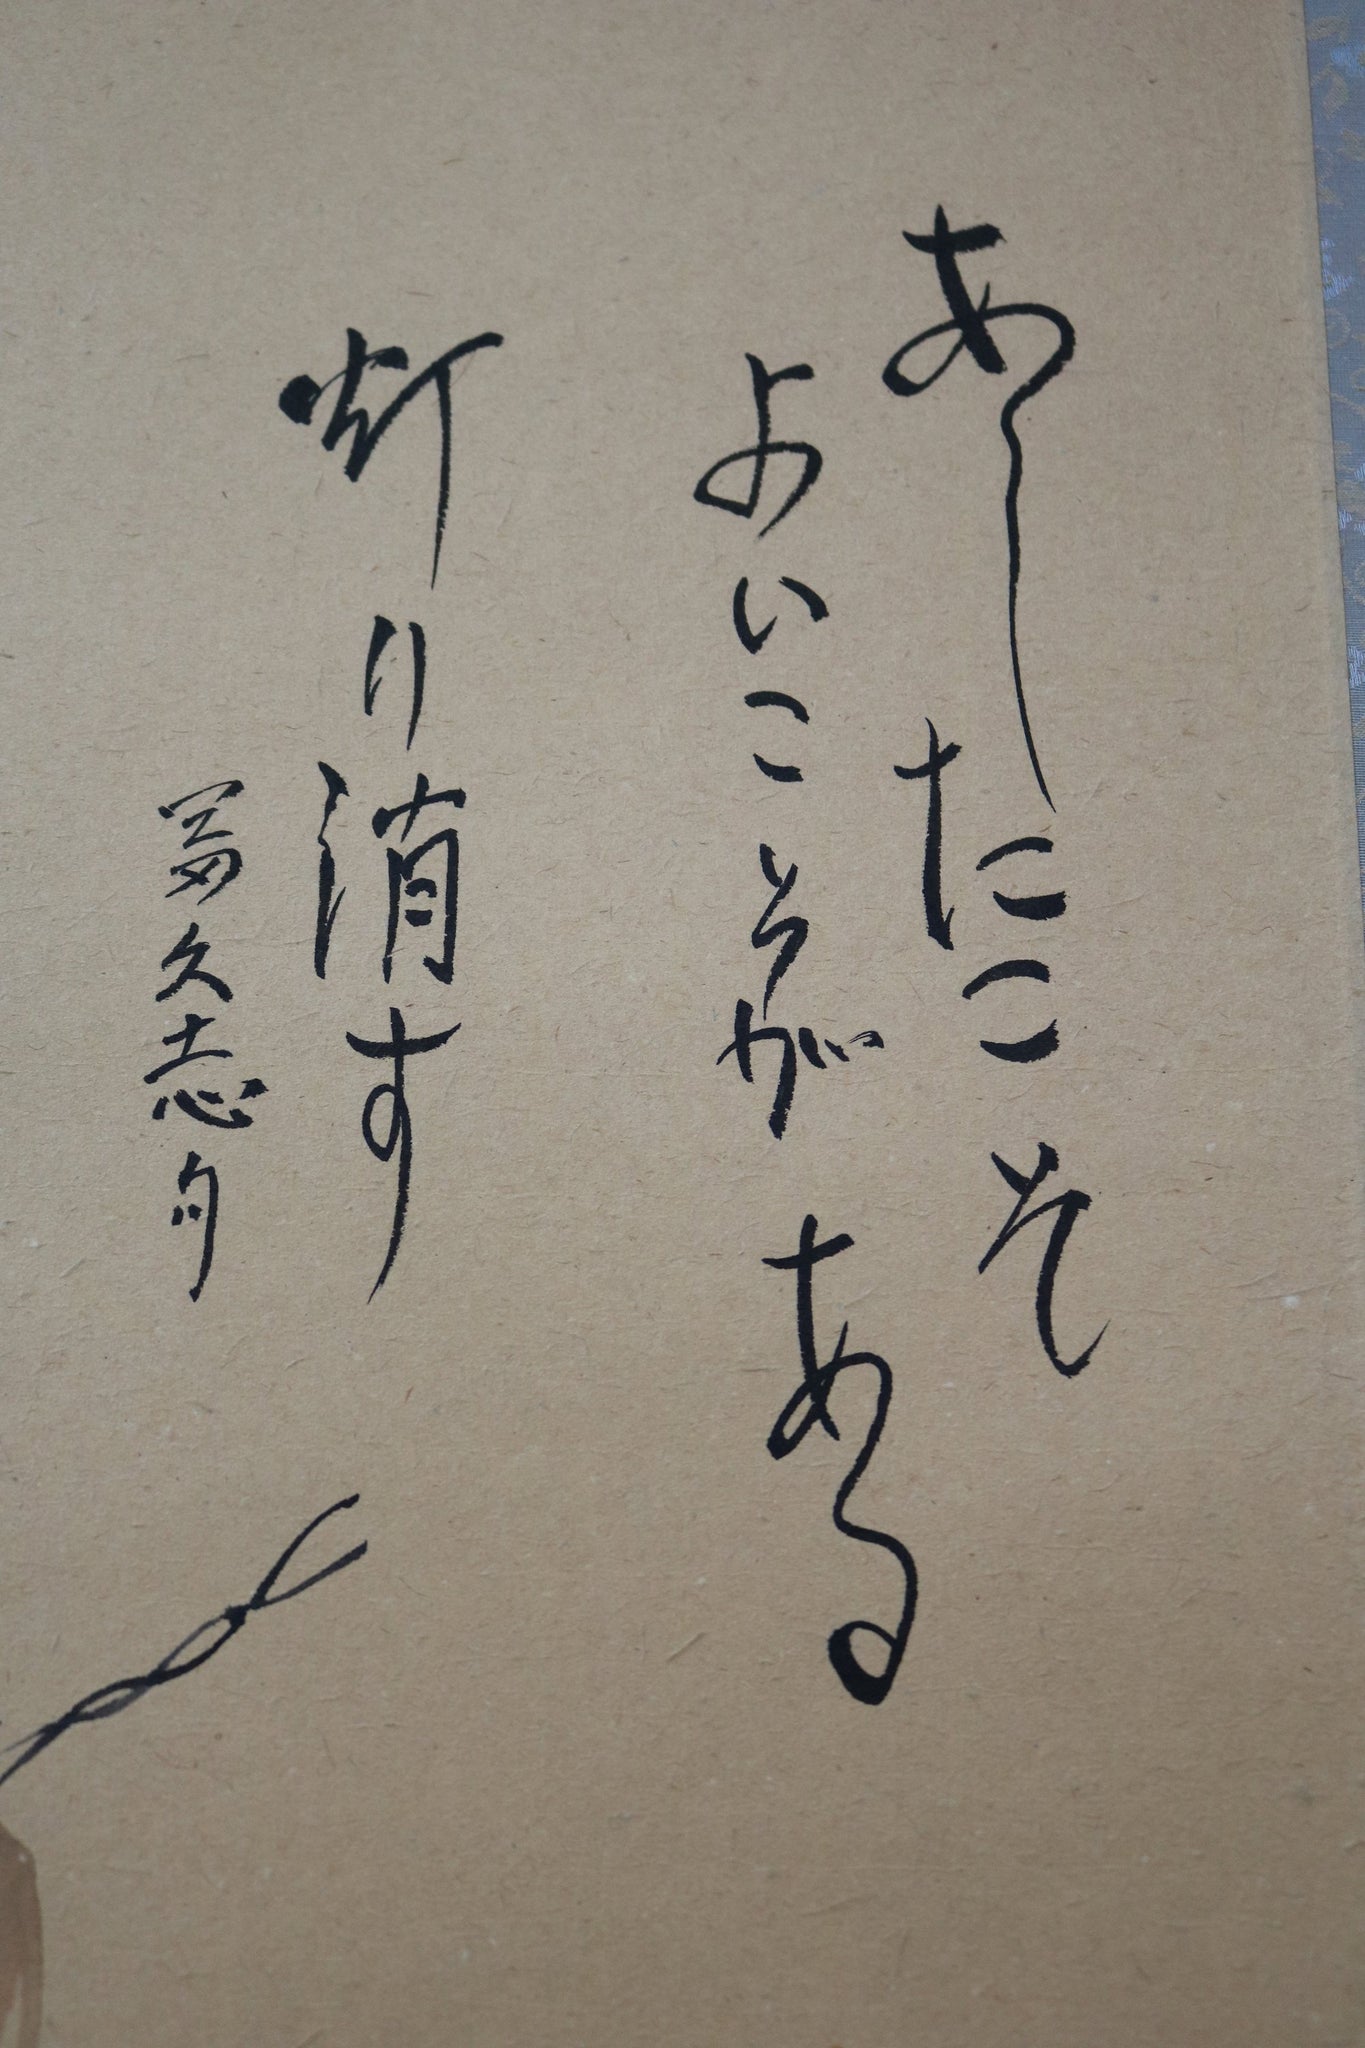 あしたこそ
よいことがある
灯り消す
冨久志句